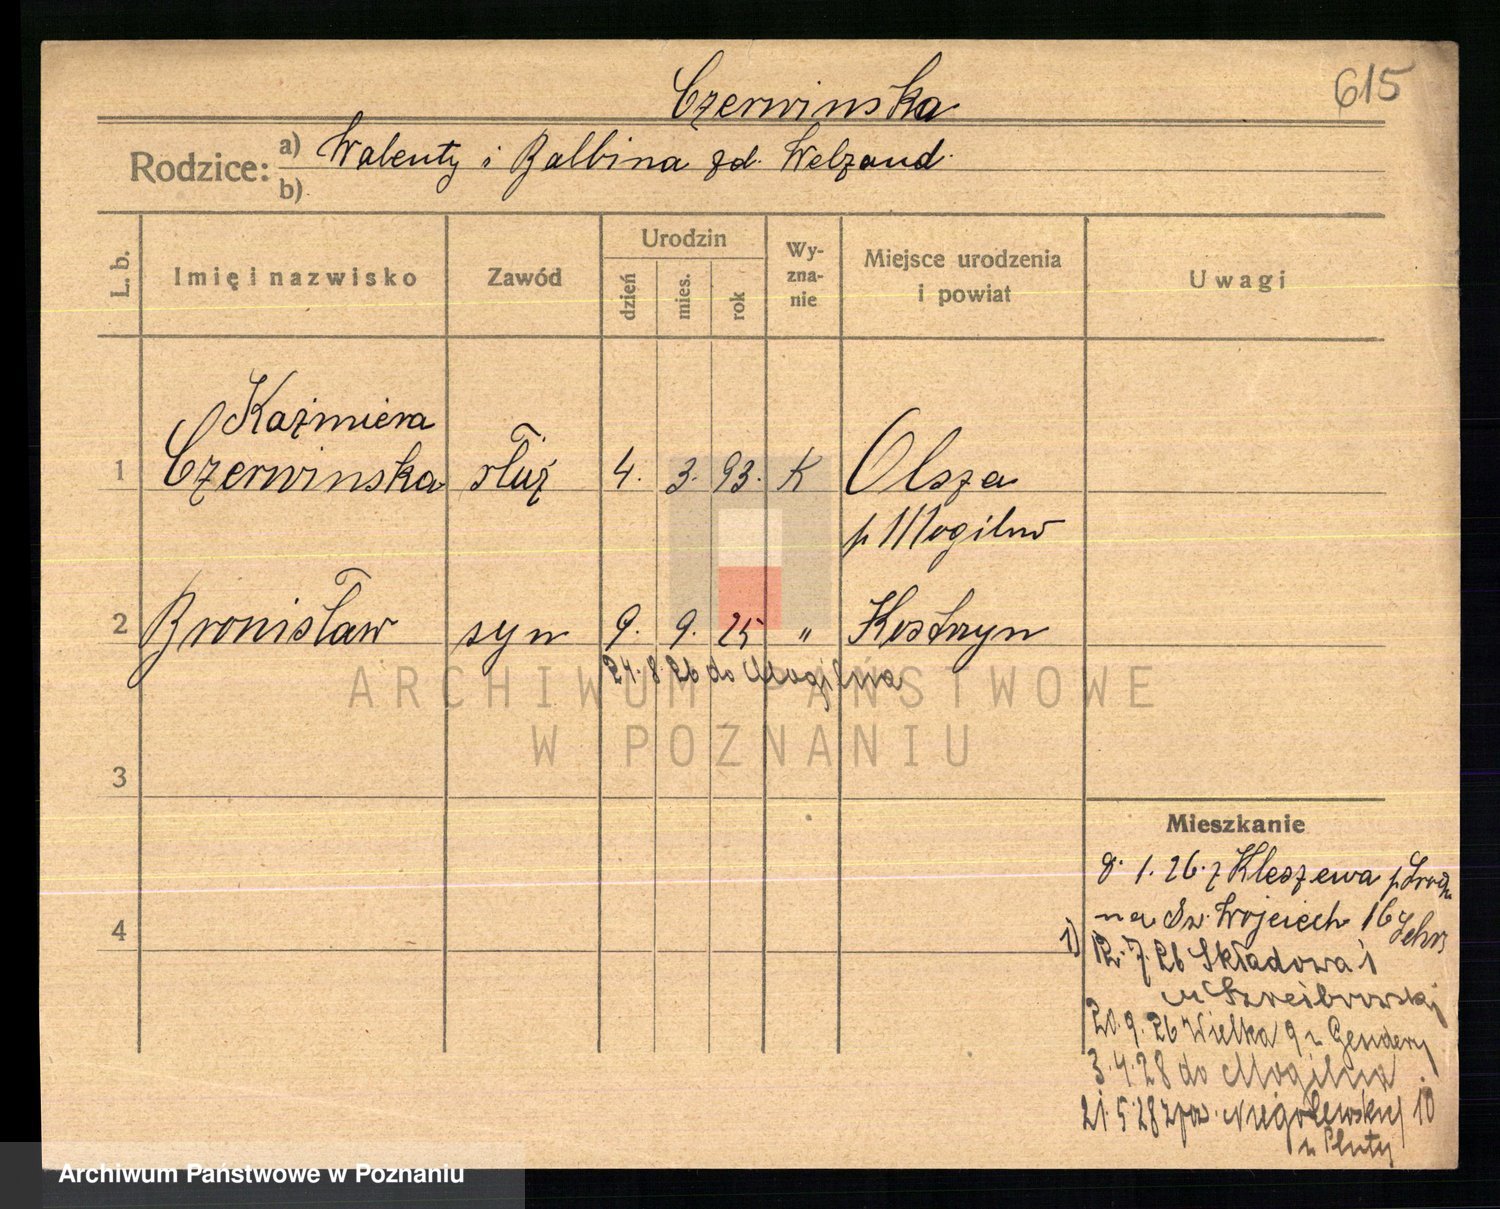 Czerwinska
615
Rodzice: a) Walenty i Balbina zd. Welzand
b)
L. b. Imię i nazwisko Zawód Urodzin dzień mies. rok Wyznanie Miejsce urodzenia i powiat Uwagi
Kaźmiera
1 Czerwinska służ 4. 3. 93. K Olsza
p Mogilno
2 Bronisław syn 9. 9. 25 " Kostrzyn
24.8.26 do Mogilna
3
4
Mieszkanie
8. 1. 26. z Kleszewa p.
na Św. Wojciech 16
1) 12.7.26 Składowa 1
20.9.26 Wielka 9
3.4.28 do Mogilna
21.5.28 Niegolewskich 10
u Pluty
ARCHIWUM PAŃSTWOWE
W POZNANIU
Archiwum Państwowe w Poznaniu